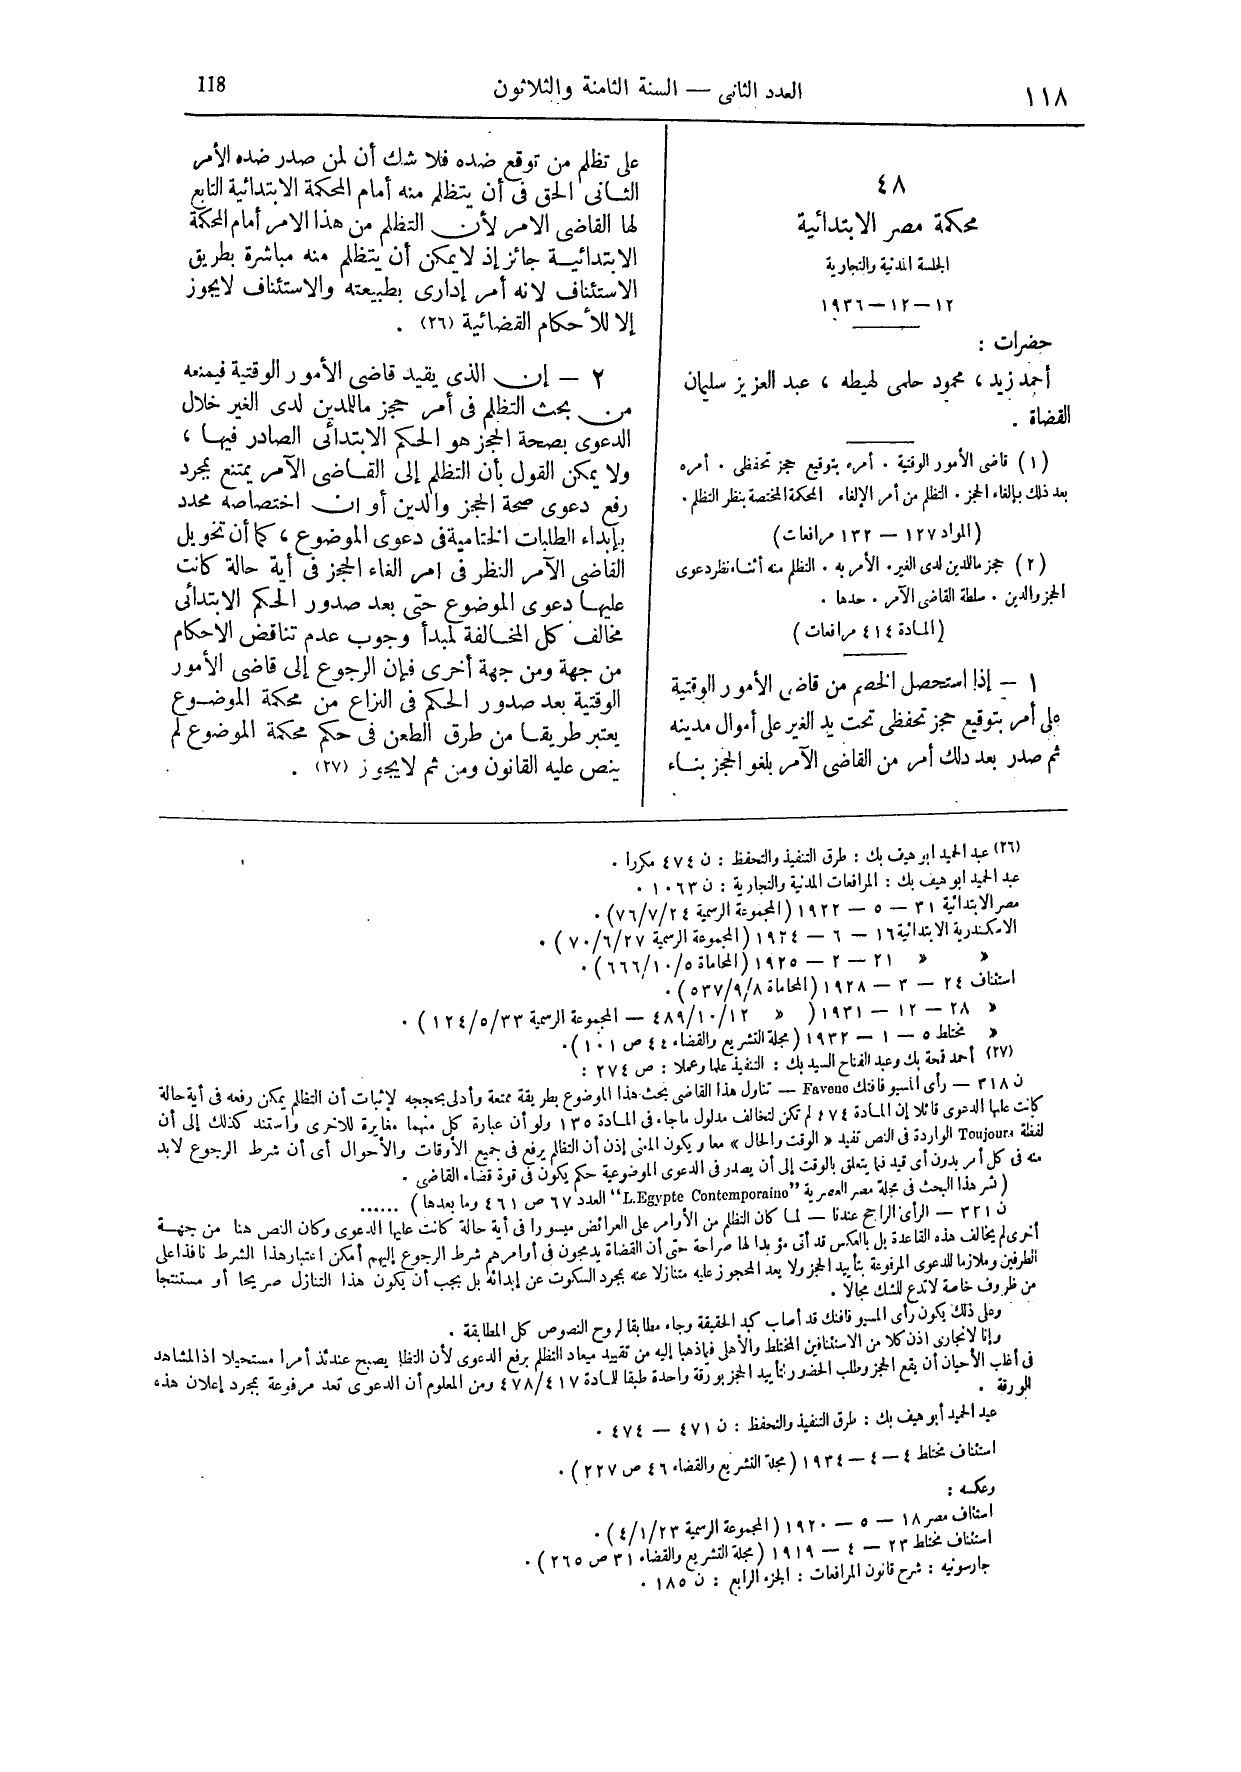 ١١٨
العدد الثانى — السنة الثامنة والثلاثون
118
٤٨
محكمة مصر الابتدائية
الجلسة المدنية والتجارية
١٢ — ١٢ — ١٩٣٦
حضرات :
أحمد زيد ، محمود حلمى لهيطه ، عبد العزيز سليمان
القضاة .
(١) قاضى الأمور الوقتية . أمره بتوقيع حجز تحفظى . أمره
بعد ذلك بإلغاء الحجز . التظلم من أمر الإلغاء المحكمة المختصة بنظر التظلم .
(المواد ١٢٧ — ١٣٢ مرافعات)
(٢) حجز ماللدين لدى الغير . الأمر به . التظلم منه أثناء نظر دعوى
الحجز والدين . سلطة القاضى الآمر . حدها .
(المادة ٤١٤ مرافعات)
١ — إذا استحصل الخصم من قاضى الأمور الوقتية
على أمر بتوقيع حجز تحفظى تحت يد الغير على أموال مدينه
ثم صدر بعد ذلك أمر من القاضى الآمر بلغو الحجز بناء
على تظلم من توقع ضده فلا شك أن لمن صدر ضده الأمر
الثانى الحق فى أن يتظلم منه أمام المحكمة الابتدائية التابع
لها القاضى الامر لأن التظلم من هذا الامر أمام المحكمة
الابتدائية جائز إذ لايمكن أن يتظلم منه مباشرة بطريق
الاستئناف لانه أمر إدارى بطبيعته والاستئناف لايجوز
إلا للأحكام القضائية (٢٦) .
٢ — إن الذى يقيد قاضى الأمور الوقتية فيمنعه
من بحث التظلم فى أمر حجز ماللدين لدى الغير خلال
الدعوى بصحة الحجز هو الحكم الابتدائى الصادر فيها ،
ولا يمكن القول بأن التظلم إلى القاضى الآمر يمتنع بمجرد
رفع دعوى صحة الحجز والدين أو ان اختصاصه محدد
بإبداء الطلبات الختامية فى دعوى الموضوع ، كما أن تخويل
القاضى الآمر النظر فى امر الغاء الحجز فى أية حالة كانت
عليها دعوى الموضوع حتى بعد صدور الحكم الابتدائى
مخالف كل المخالفة لمبدأ وجوب عدم تناقض الاحكام
من جهة ومن جهة أخرى فإن الرجوع إلى قاضى الأمور
الوقتية بعد صدور الحكم فى النزاع من محكمة الموضوع
يعتبر طريقا من طرق الطعن فى حكم محكمة الموضوع لم
ينص عليه القانون ومن ثم لايجوز (٢٧) .
(٢٦) عبد الحميد ابو هيف بك : طرق التنفيذ والتحفظ : ن ٤٧٤ مكررا .
عبد الحميد ابو هيف بك : المرافعات المدنية والتجارية : ن ١٠٦٣ .
مصر الابتدائية ٣١ — ٥ — ١٩٢٢ (المجموعة الرسمية ٢٤/٧/٧٦) .
الاسكندرية الابتدائية ١٦ — ٦ — ١٩٢٤ (المجموعة الرسمية ٢٧/٦/٧٠) .
» » ٢١ — ٢ — ١٩٢٥ (المحاماة ٥/١٠/٦٦٦) .
استئناف ٢٤ — ٣ — ١٩٢٨ (المحاماة ٨/٩/٥٣٧) .
» ٢٨ — ١٢ — ١٩٣١ ( » ١٢/١٠/٤٨٩ — المجموعة الرسمية ٣٣/٥/١٢٤) .
» مختلط ٥ — ١ — ١٩٣٢ (مجلة التشريع والقضاء ٤٤ ص ١٠١) .
(٢٧) أحمد قمحة بك وعبد الفتاح السيد بك : التنفيذ علما وعملا : ص ٢٧٤ :
ن ٣١٨ — رأى المسيو فافنك Faveno — تناول هذا القاضى بحث هذا الموضوع بطريقة ممتعة وأدلى بحججه لإثبات أن التظلم يمكن رفعه فى أية حالة
كانت عليها الدعوى قائلا إن المادة ٤٧٤ لم تكن لتخالف مدلول ماجاء فى المادة ١٣٥ ولو أن عبارة كل منهما مغايرة للاخرى وأستند كذلك إلى أن
لفظة Toujours الواردة فى النص تفيد « الوقت والحال » معا ويكون المعنى إذن أن التظلم يرفع فى جميع الأوقات والأحوال أى أن شرط الرجوع لابد
منه فى كل أمر بدون أى قيد فيما يتعلق بالوقت إلى أن يصدر فى الدعوى الموضوعية حكم يكون فى قوة قضاء القاضى .
(نشر هذا البحث فى مجلة مصر العصرية "L.Egypte Contemporaino" العدد ٦٧ ص ٤٦١ وما بعدها) ......
ن ٣٢١ — الرأى الراجح عندنا — لما كان التظلم من الأوامر على العرائض ميسورا فى أية حالة كانت عليها الدعوى وكان النص هنا من جهة
أخرى لم يخالف هذه القاعدة بل بالعكس قد أتى مؤيدا لها صراحة حتى أن القضاة يدمجون فى أوامرهم شرط الرجوع إليهم أمكن اعتبار هذا الشرط نافذا على
الطرفين وملازما للدعوى المرفوعة بتأييد الحجز ولا يعد المحجوز عليه متنازلا عنه بمجرد السكوت عن إبدائه بل يجب أن يكون هذا التنازل صريحا أو مستنتجا
من ظروف خاصة لاتدع للشك مجالا .
وعلى ذلك يكون رأى المسيو فافنك قد أصاب كبد الحقيقة وجاء مطابقا لروح النصوص كل المطابقة .
وإنا لانجارى اذن كلا من الاستئنافين المختلط والأهلى فيما ذهبا إليه من تقييد ميعاد التظلم برفع الدعوى لأن التظلم يصبح عندئذ أمرا مستحيلا اذ المشاهد
فى أغلب الأحيان أن يقع الحجز وطلب الحضور لتأييد الحجز بورقة واحدة طبقا للمادة ٤١٧/٤٧٨ ومن المعلوم أن الدعوى تعد مرفوعة بمجرد إعلان هذه
الورقة .
عبد الحميد أبو هيف بك : طرق التنفيذ والتحفظ : ن ٤٧١ — ٤٧٤ .
استئناف مختلط ٤ — ٤ — ١٩٣٤ (مجلة التشريع والقضاء ٤٦ ص ٢٢٧) .
وعكسه :
استئناف مصر ١٨ — ٥ — ١٩٢٠ (المجموعة الرسمية ٢٣/١/٤) .
استئناف مختلط ٢٣ — ٤ — ١٩١٩ (مجلة التشريع والقضاء ٣١ ص ٢٦٥) .
جارسونيه : شرح قانون المرافعات : الجزء الرابع : ن ١٨٥ .